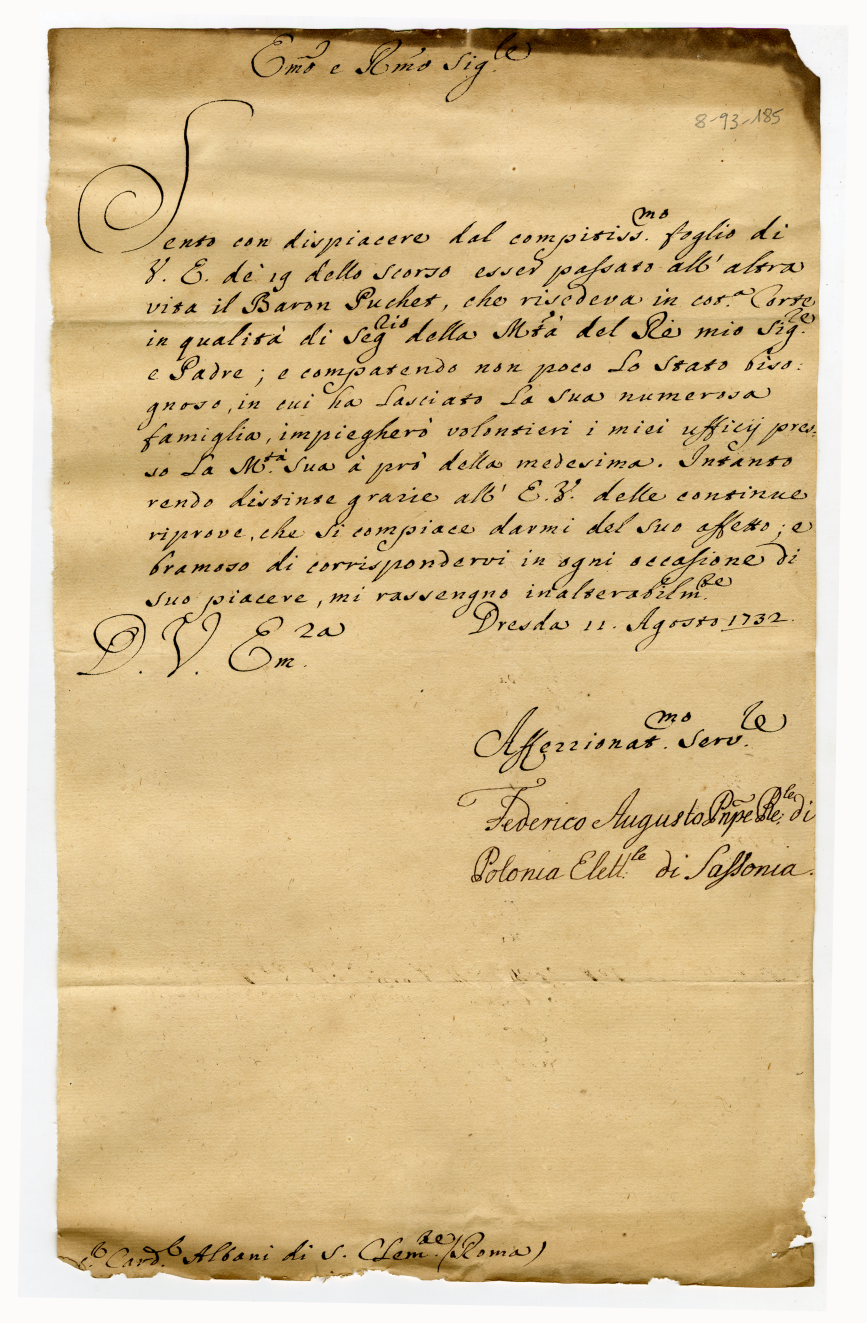 Emo e Rmo Sig.le
8-93-185
Sento con dispiacere dal compitiss.mo foglio di
V. E. de' 19 dello scorso esser passato all' altra
vita il Baron Puchet, che risedeva in cot.a Corte
in qualità di Seg.rio della Mtà del Rè mio Sig.re
e Padre; e compatendo non poco lo stato biso:
gnoso, in cui ha lasciato la sua numerosa
famiglia, impiegherò volontieri i miei ufficij pres:
so la M.tà Sua à prò della medesima. Intanto
rendo distinte grazie all' E. V. delle continue
riprove, che si compiace darmi del suo affetto; e
bramoso di corrispondervi in ogni occasione di
suo piacere, mi rassengno inalterabilm.te
D. V. Em.za Dresda 11. Agosto 1732.
Affezzionat.mo Serv.re
Federico Augusto Pnpe Re.le di
Polonia Elett.le di Sassonia.
Card.l Albani di S. Clem.te (Roma)